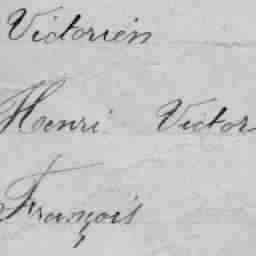 Victorien
Henri Victor
François